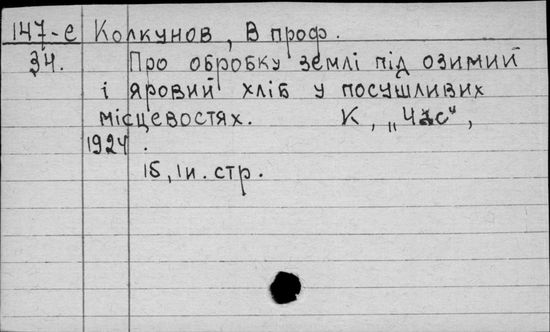 147-е Колкунов, В проф.
34. Про обробку землі під озимий
і яровий хліб у посушливих
місцевостях. К, „Час",
1924.
15, 1н. стр.